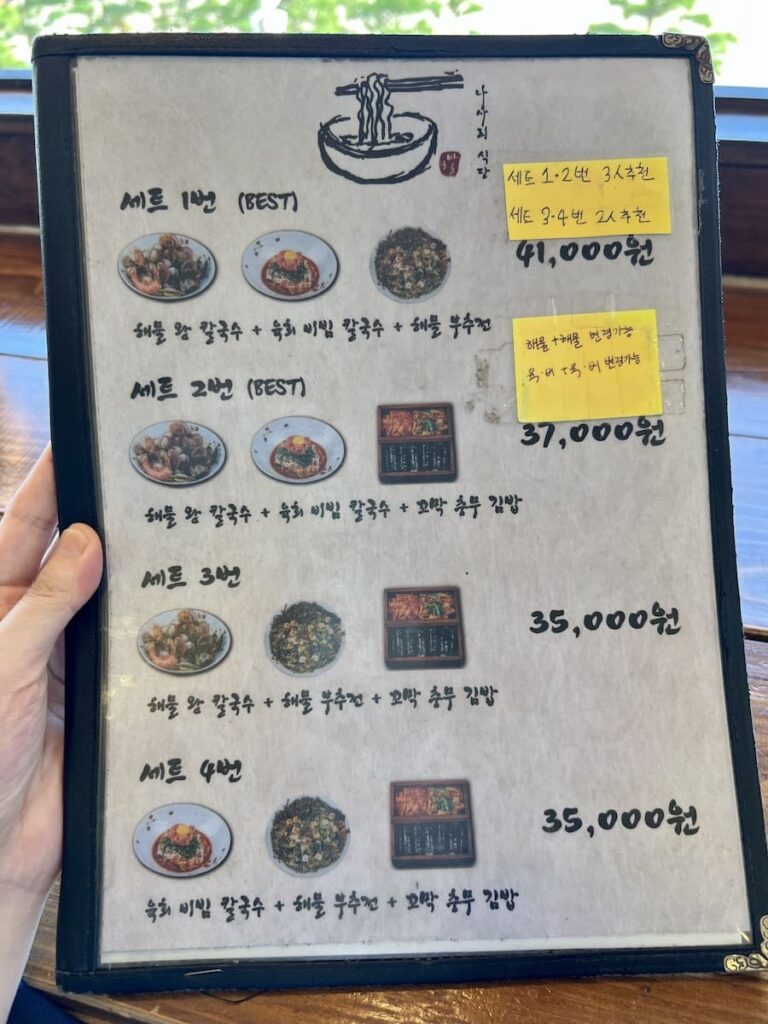 나사리 식당
세트 1번 (BEST)
세트 1·2번 3人추천
세트 3·4번 2人추천
41,000원
해물 왕 칼국수 + 육회 비빔 칼국수 + 해물 부추전
해물+해물 변경가능
육·비+육·비 변경가능
세트 2번 (BEST)
37,000원
해물 왕 칼국수 + 육회 비빔 칼국수 + 꼬막 충무 김밥
세트 3번
35,000원
해물 왕 칼국수 + 해물 부추전 + 꼬막 충무 김밥
세트 4번
35,000원
육회 비빔 칼국수 + 해물 부추전 + 꼬막 충무 김밥